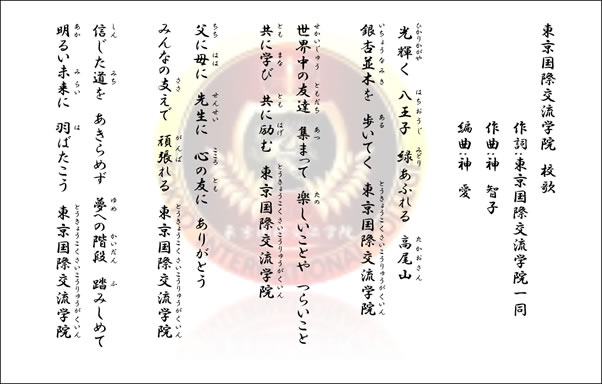 東京国際交流学院 校歌
作詞:東京国際交流学院一同
作曲:神 智子
編曲:神 愛
光輝く 八王子 緑あふれる 高尾山
銀杏並木を 歩いてく 東京国際交流学院
世界中の友達 集まって 楽しいことや つらいこと
共に学び 共に励む 東京国際交流学院
父に母に 先生に 心の友に ありがとう
みんなの支えで 頑張れる 東京国際交流学院
信じた道を あきらめず 夢への階段 踏みしめて
明るい未来に 羽ばたこう 東京国際交流学院